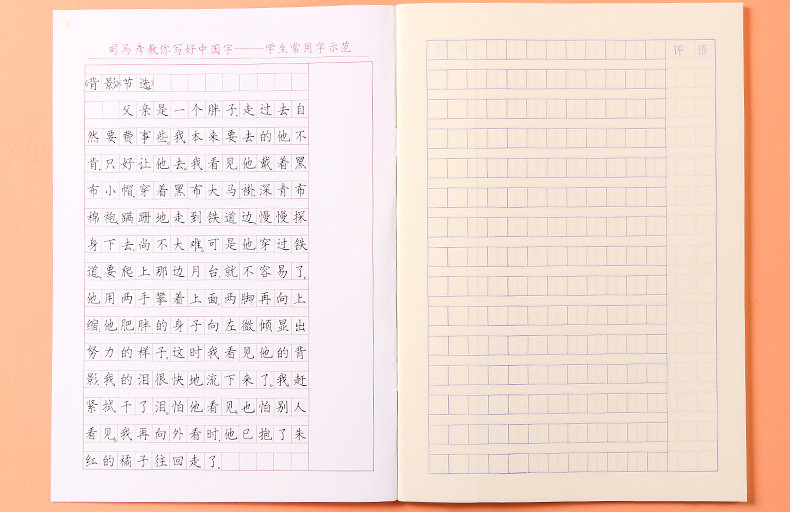 司马彦教你写好中国字——学生常用字示范
《背影》节选
父亲是一个胖子,走过去自
然要费事些。我本来要去的,他不
肯,只好让他去。我看见他戴着黑
布小帽,穿着黑布大马褂,深青布
棉袍,蹒跚地走到铁道边,慢慢探
身下去,尚不大难。可是他穿过铁
道,要爬上那边月台,就不容易了。
他用两手攀着上面,两脚再向上
缩;他肥胖的身子向左微倾,显出
努力的样子。这时我看见他的背
影,我的泪很快地流下来了。我赶
紧拭干了泪。怕他看见,也怕别人
看见。我再向外看时,他已抱了朱
红的橘子往回走了。
评语